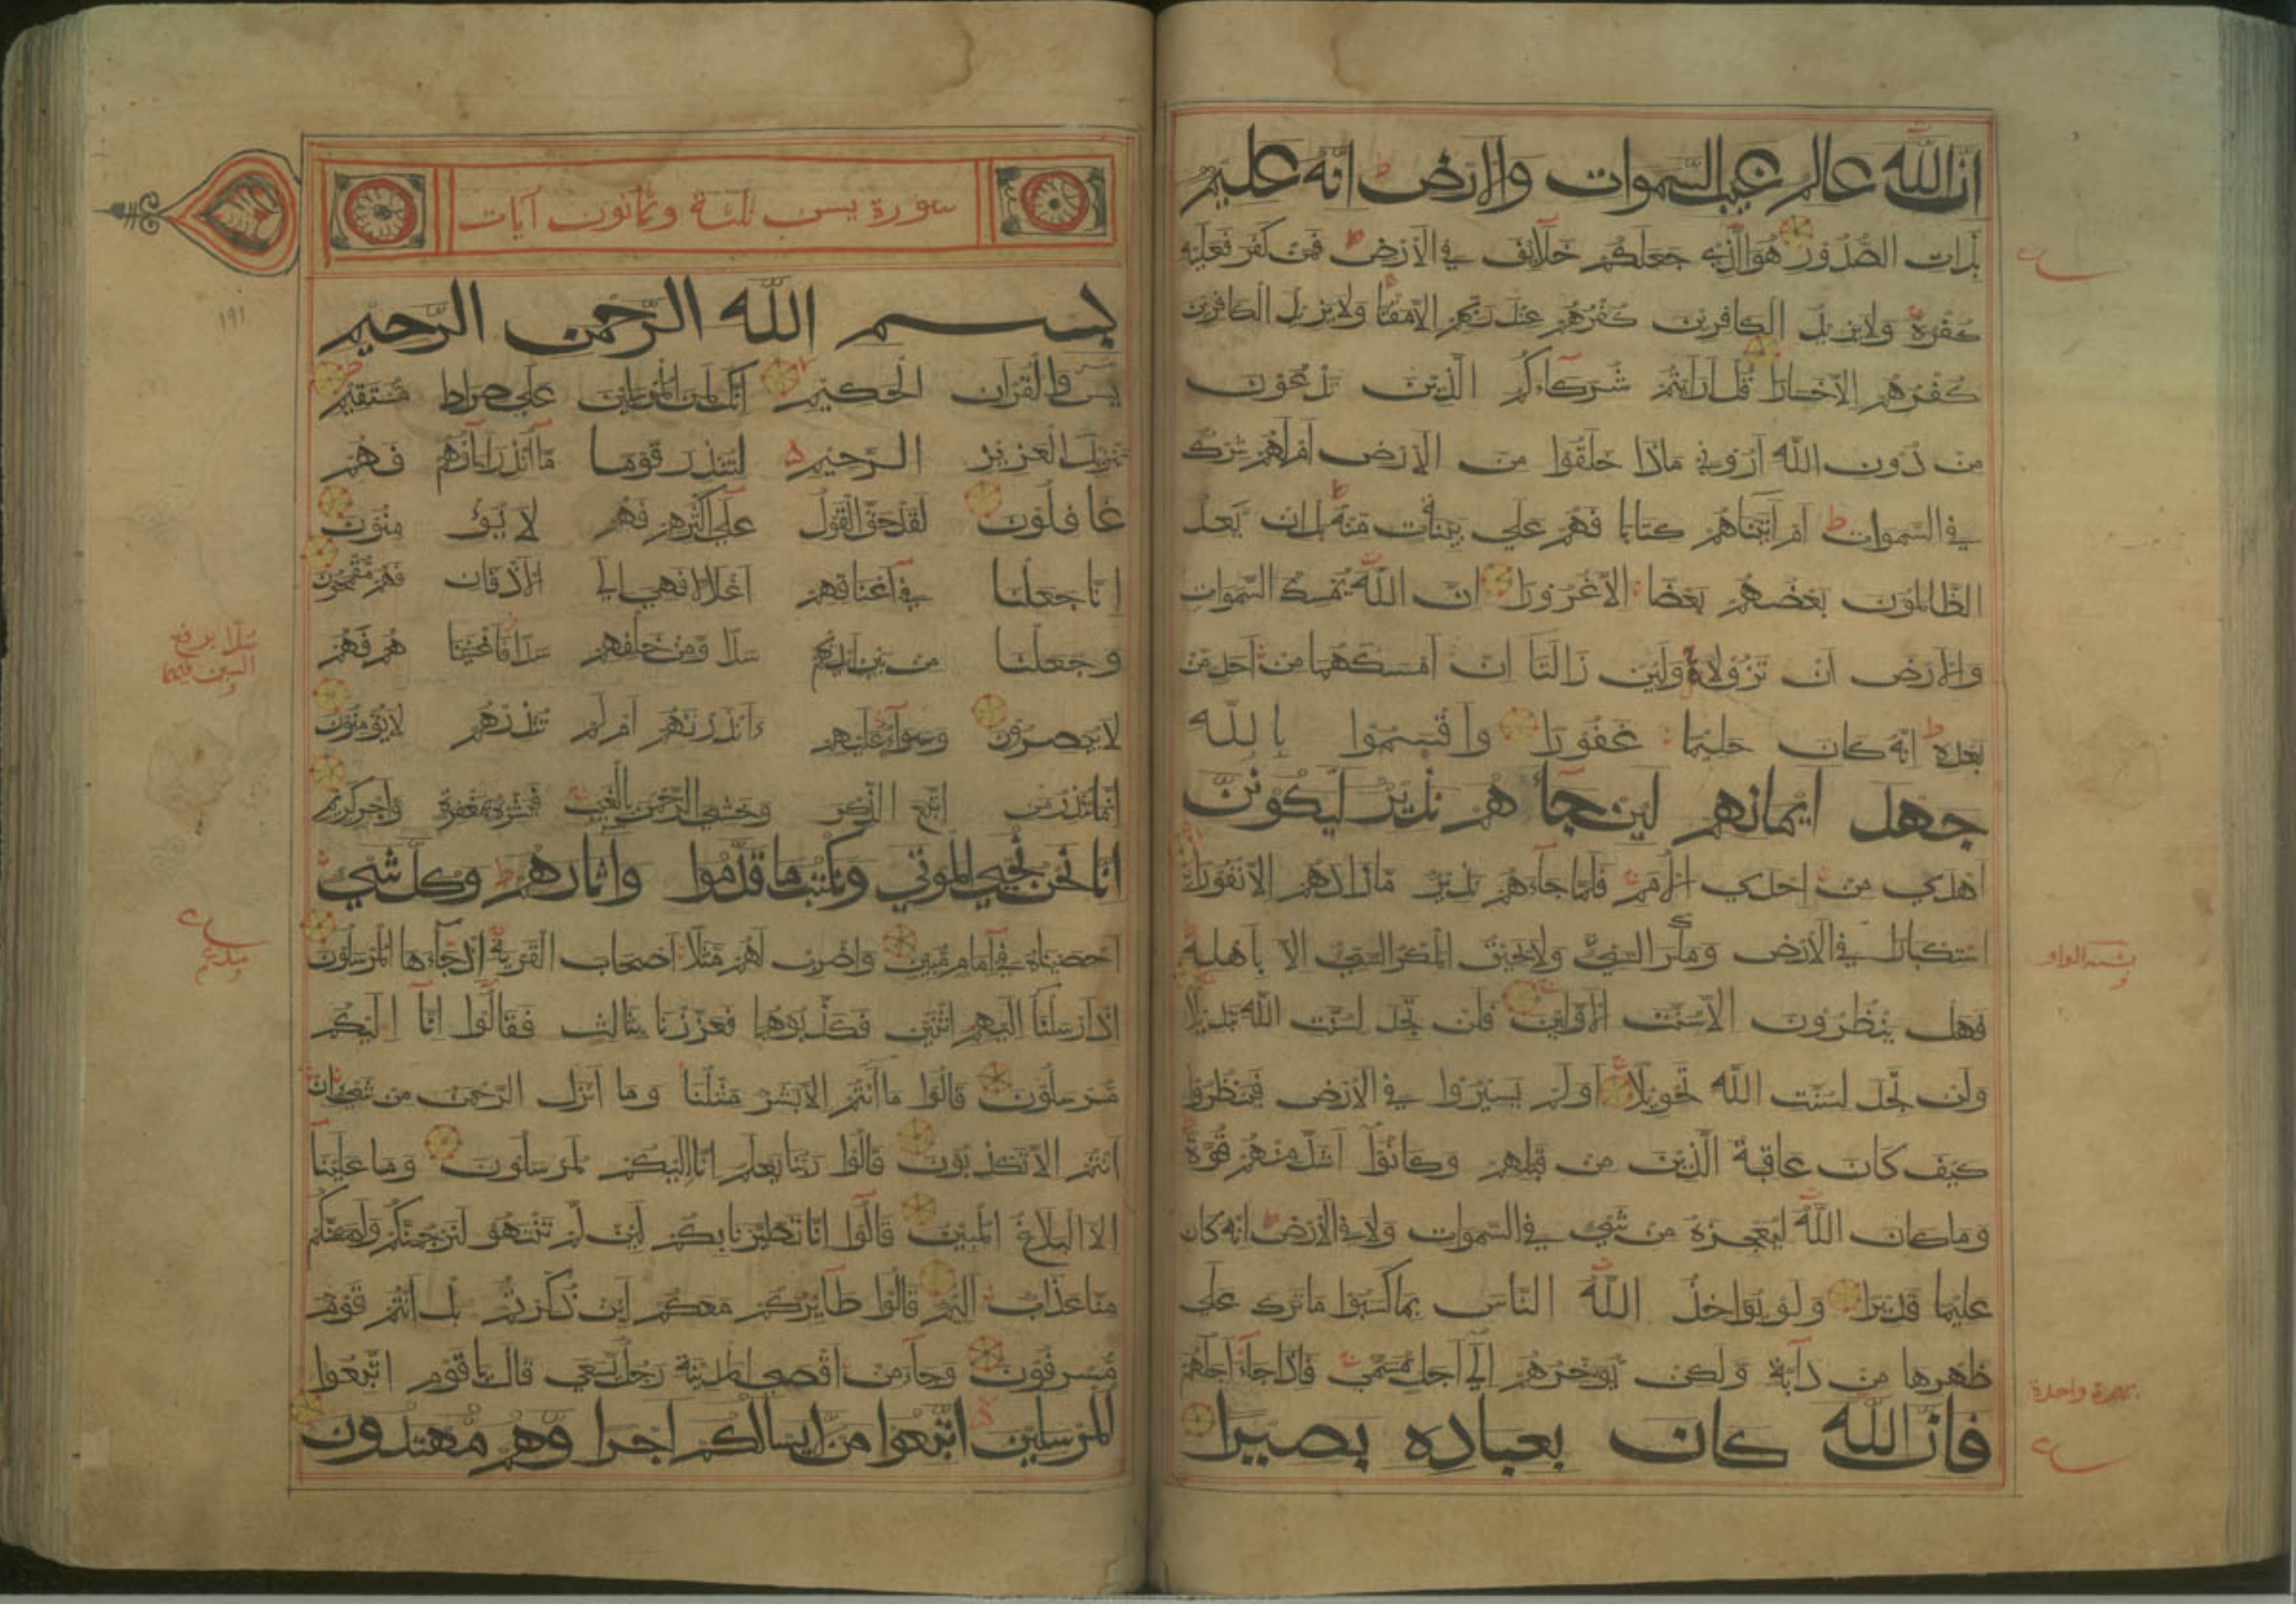 ان الله عالم غيب السموات والارض انه عليم
بذات الصدور هو الذي جعلكم خلائف في الارض فمن كفر فعليه
كفره ولا يزيد الكافرين كفرهم عند ربهم الا مقتا ولا يزيد الكافرين
كفرهم الا خسارا قل ارايتم شركاءكم الذين تدعون
من دون الله اروني ماذا خلقوا من الارض ام لهم شرك
في السموات ام آتيناهم كتابا فهم على بينات منه بل ان يعد
الظالمون بعضهم بعضا الا غرورا ان الله يمسك السموات
والارض ان تزولا ولئن زالتا ان امسكهما من احد من
بعده انه كان حليما غفورا واقسموا بالله
جهد ايمانهم لئن جآءهم نذير ليكونن
اهدى من احدى الامم فلما جآءهم نذير ما زادهم الا نفورا
استكبارا في الارض ومكر السيئ ولا يحيق المكر السيئ الا باهله
فهل ينظرون الا سنت الاولين فلن تجد لسنت الله تبديلا
ولن تجد لسنت الله تحويلا اولم يسيروا في الارض فينظروا
كيف كان عاقبة الذين من قبلهم وكانوا اشد منهم قوة
وما كان الله ليعجزه من شئ في السموات ولا في الارض انه كان
عليما قديرا ولو يؤاخذ الله الناس بما كسبوا ما ترك على
ظهرها من دآبة ولكن يؤخرهم الى اجل مسمى فاذا جآء اجلهم
فان الله كان بعباده بصيرا
بهمزة واحدة
سورة يس ثلثة وثمانون آيات
١٩١
بسم الله الرحمن الرحيم
يس والقرآن الحكيم انك لمن المرسلين على صراط مستقيم
تنزيل العزيز الرحيم لتنذر قوما مآ انذر اباؤهم فهم
غافلون لقد حق القول على اكثرهم فهم لا يؤمنون
انا جعلنا في اعناقهم اغلالا فهي الى الاذقان فهم مقمحون
وجعلنا من بين ايديهم سدا ومن خلفهم سدا فاغشيناهم فهم
لا يبصرون وسوآء عليهم ءانذرتهم ام لم تنذرهم لا يؤمنون
انما تنذر من اتبع الذكر وخشي الرحمن بالغيب فبشره بمغفرة واجر كريم
انا نحن نحيي الموتى ونكتب ما قدموا واثارهم وكل شئ
احصيناه في امام مبين واضرب لهم مثلا اصحاب القرية اذ جآءها المرسلون
اذ ارسلنا اليهم اثنين فكذبوهما فعززنا بثالث فقالوا انا اليكم
مرسلون قالوا ما انتم الا بشر مثلنا وما انزل الرحمن من شئ ان
انتم الا تكذبون قالوا ربنا يعلم انا اليكم لمرسلون وما علينا
الا البلاغ المبين قالوا انا تطيرنا بكم لئن لم تنتهوا لنرجمنكم وليمسنكم
منا عذاب اليم قالوا طآئركم معكم ائن ذكرتم بل انتم قوم
مسرفون وجآء من اقصى المدينة رجل يسعى قال يا قوم اتبعوا
المرسلين اتبعوا من لا يسالكم اجرا وهم مهتدون
سدا برفع
السين فيهما